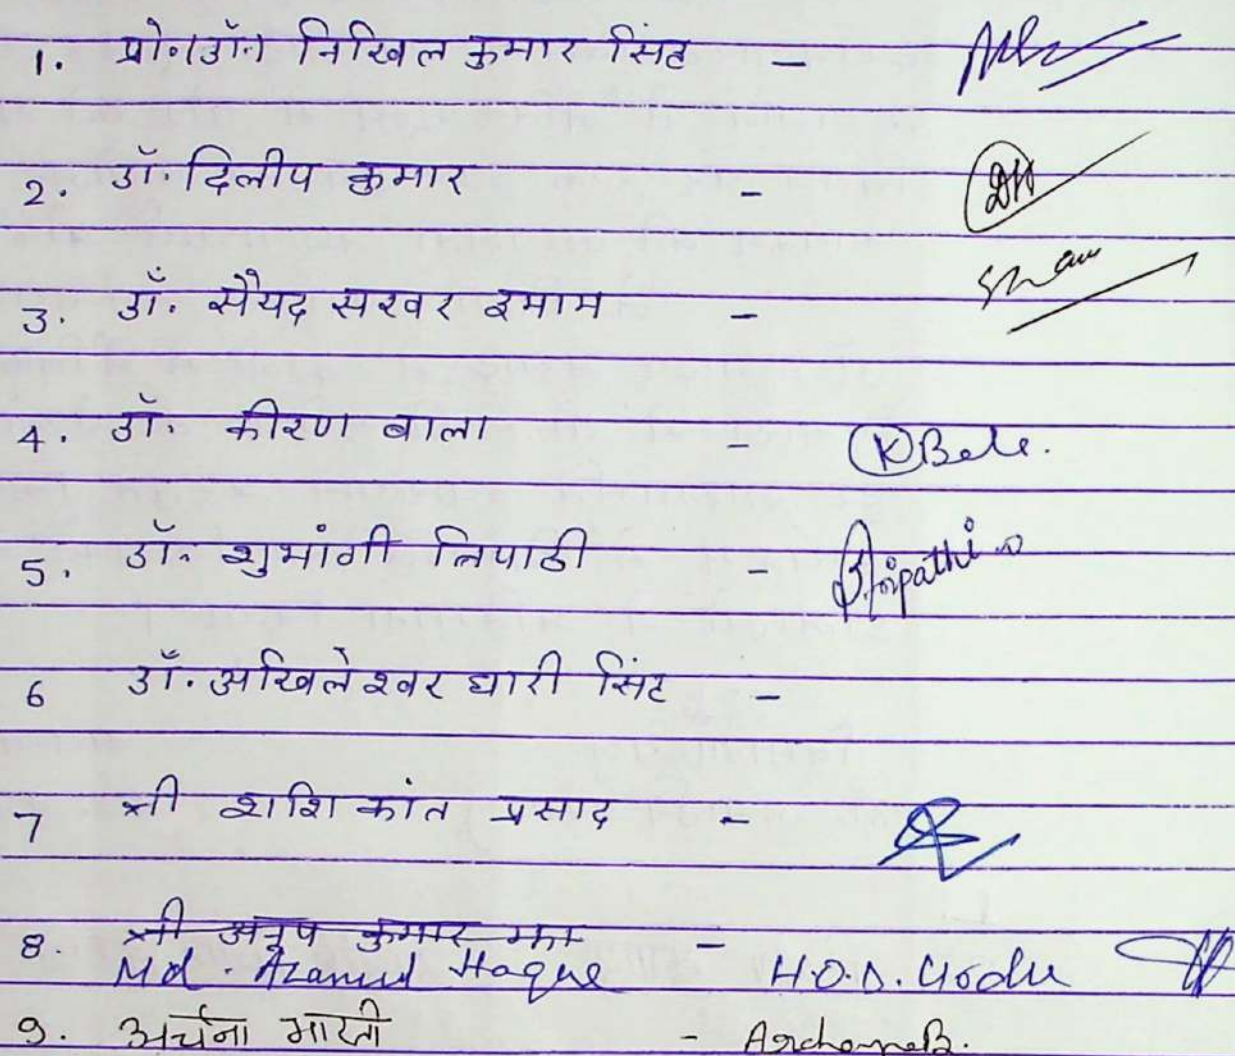 1. प्रो.(डॉ.) निखिल कुमार सिंह -
2. डॉ. दिलीप कुमार -
3. डॉ. सैयद सरवर इमाम -
4. डॉ. कीरण बाला - KBala.
5. डॉ. शुभांगी त्रिपाठी - Tripathi
6 डॉ. अखिलेश्वर धारी सिंह -
7 श्री शशि कांत प्रसाद -
8. श्री अनुप कुमार झा -
Md. Azamul Haque H.O.D. Urdu
9. अर्चना भारती - ArchanaB.